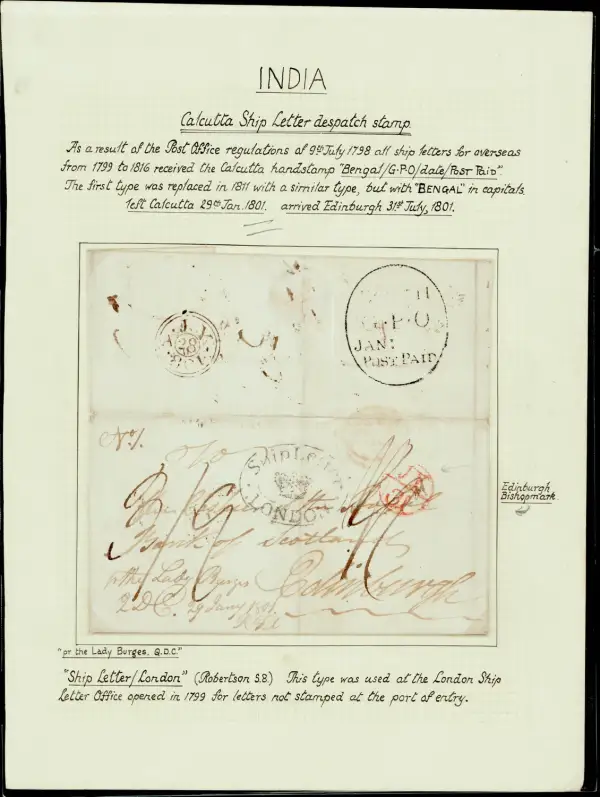 INDIA
Calcutta Ship Letter despatch stamp.
As a result of the Post Office regulations of 9th July 1798 all ship letters for overseas
from 1799 to 1816 received the Calcutta handstamp "Bengal/G·P·O/date/Post Paid".
The first type was replaced in 1811 with a similar type, but with "BENGAL" in capitals.
left Calcutta 29th Jan. 1801. arrived Edinburgh 31st July, 1801.
28
801
G·P·O
JAN:
POST PAID
No/.
To
Ship Letter
LONDON
Bank of Scotland
Edinburgh
pr the Lady Burges
Q.D.C. 29 Jany 1801
Edinburgh
Bishopmark.
"pr the Lady Burges, Q.D.C."
"Ship Letter/London" (Robertson S.8) This type was used at the London Ship
Letter Office opened in 1799 for letters not stamped at the port of entry.